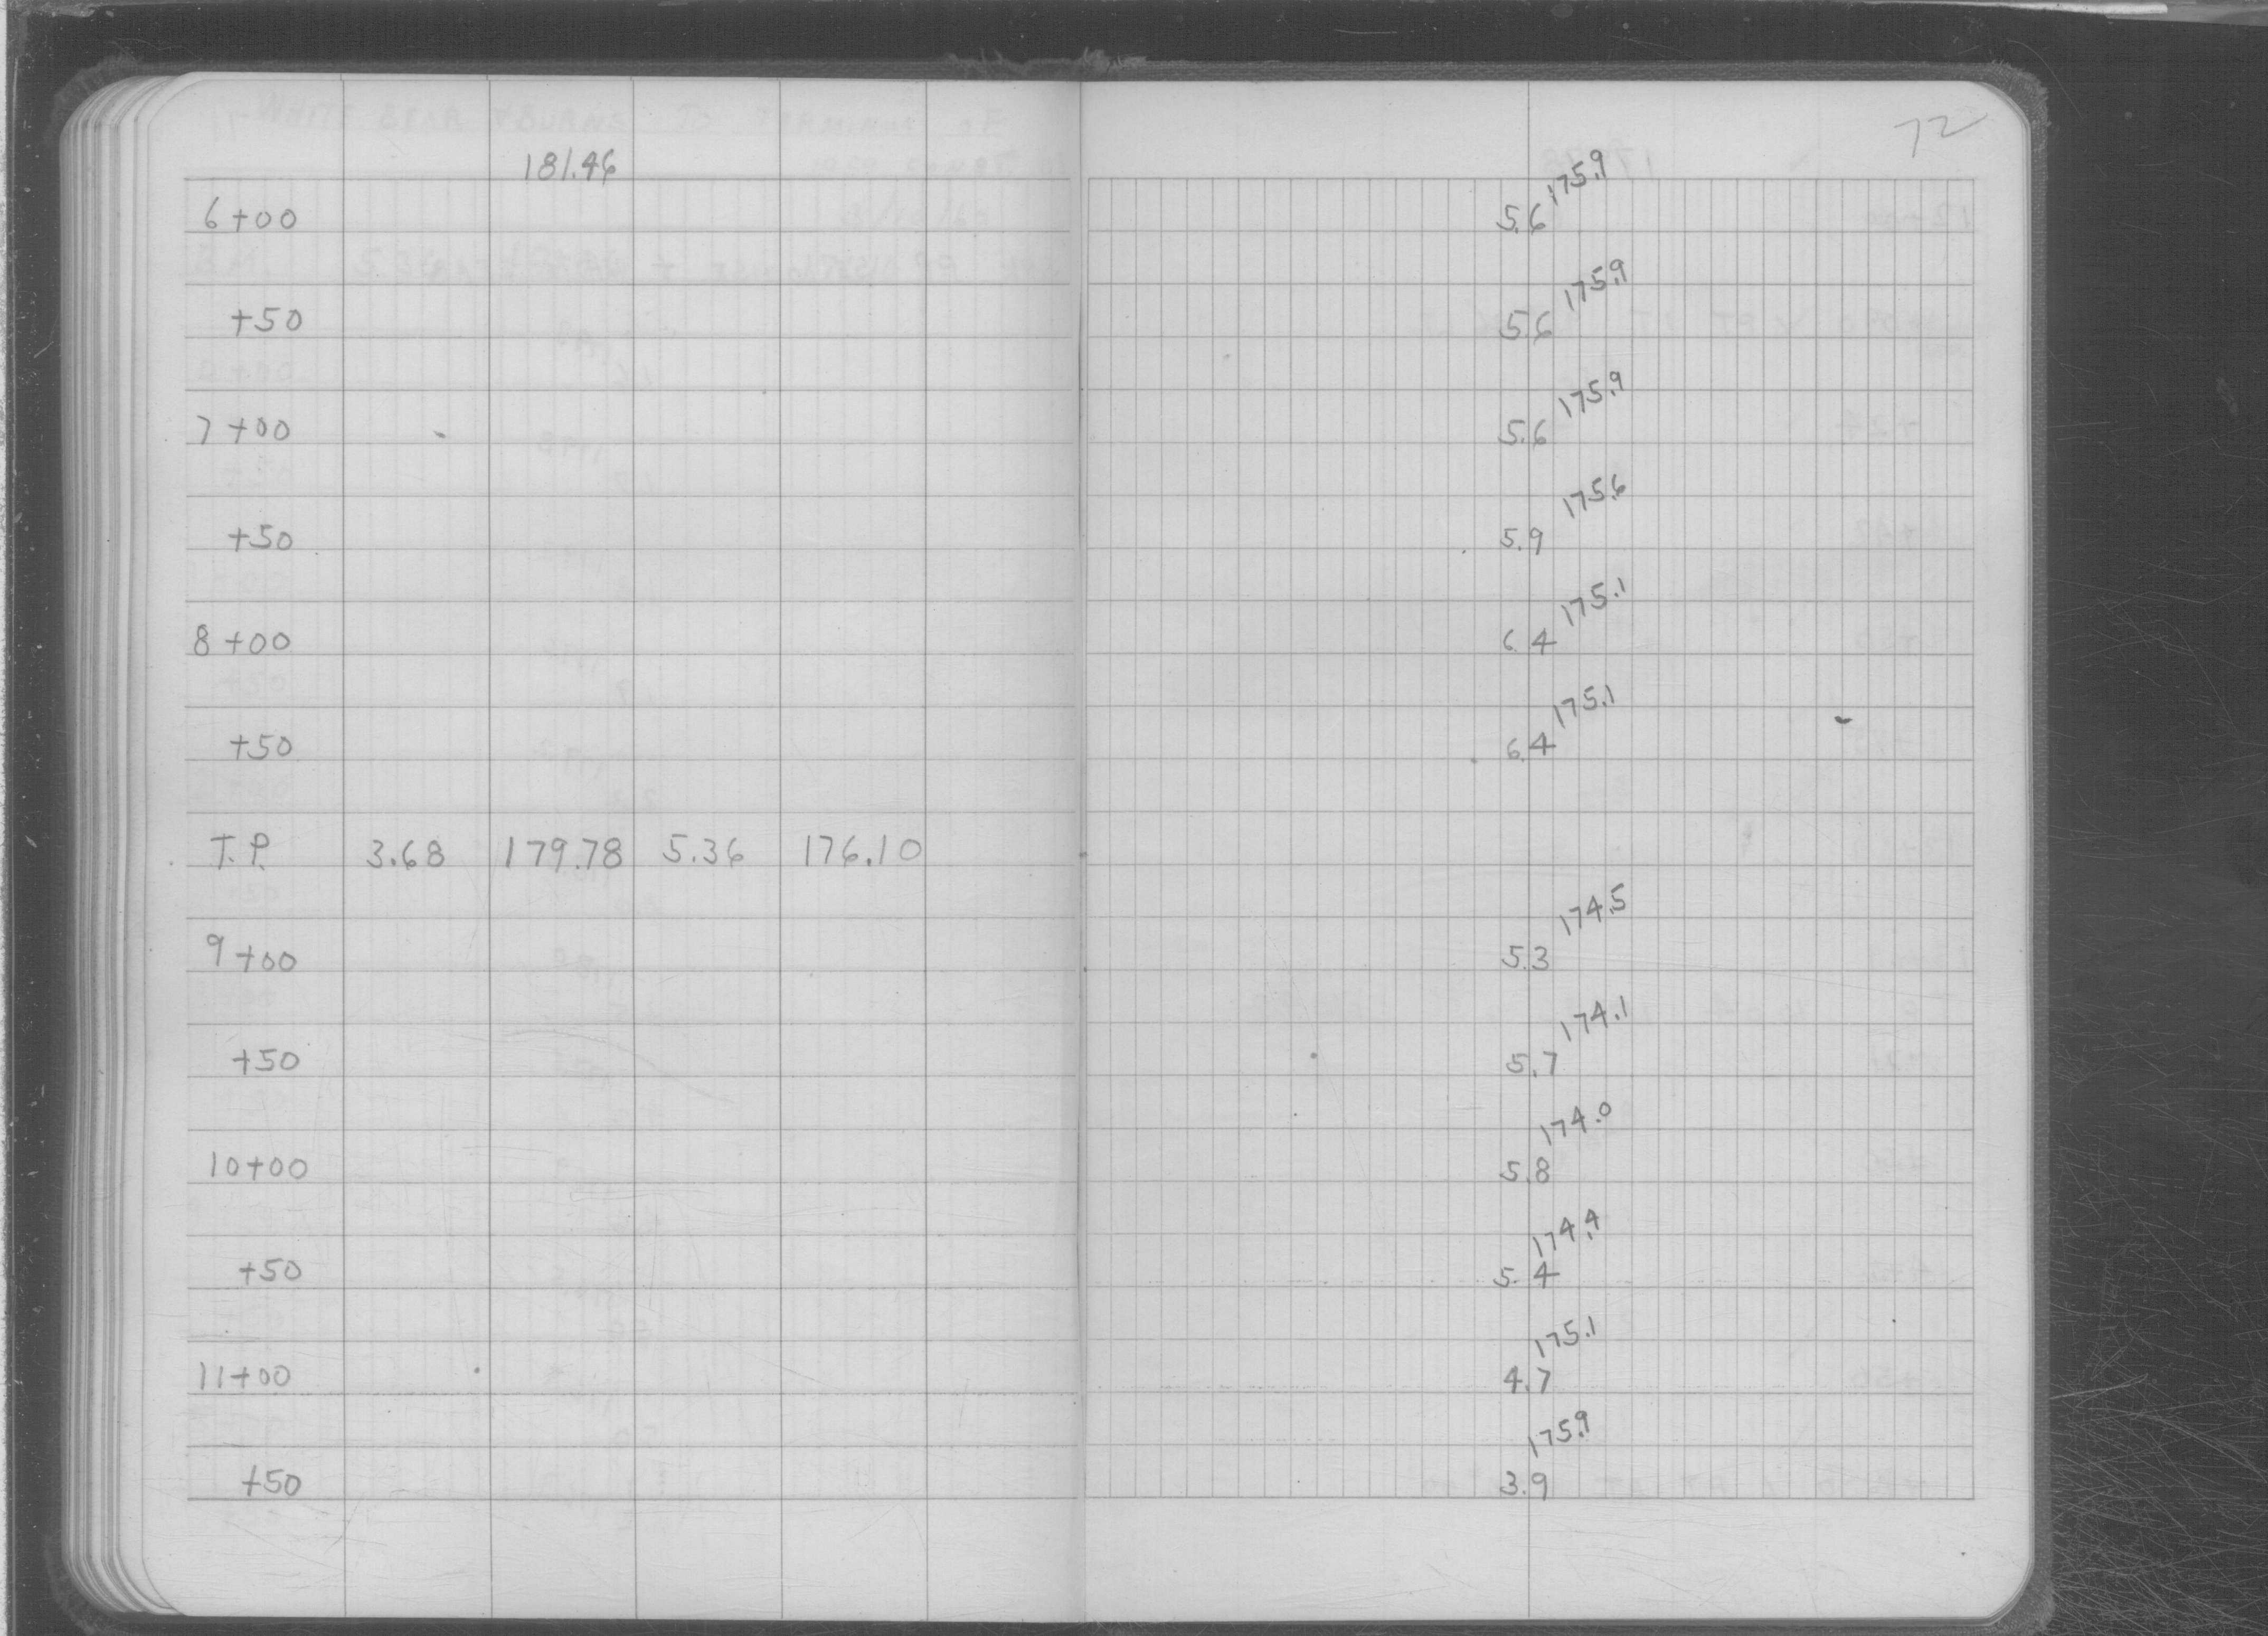 72
181.46
175.9
6+00 5.6
175.9
+50 5.6
175.9
7+00 5.6
175.6
+50 5.9
175.1
8+00 6.4
175.1
+50 6.4
T.P. 3.68 179.78 5.36 176.10
174.5
9+00 5.3
174.1
+50 5.7
174.0
10+00 5.8
174.4
+50 5.4
175.1
11+00 4.7
175.9
+50 3.9